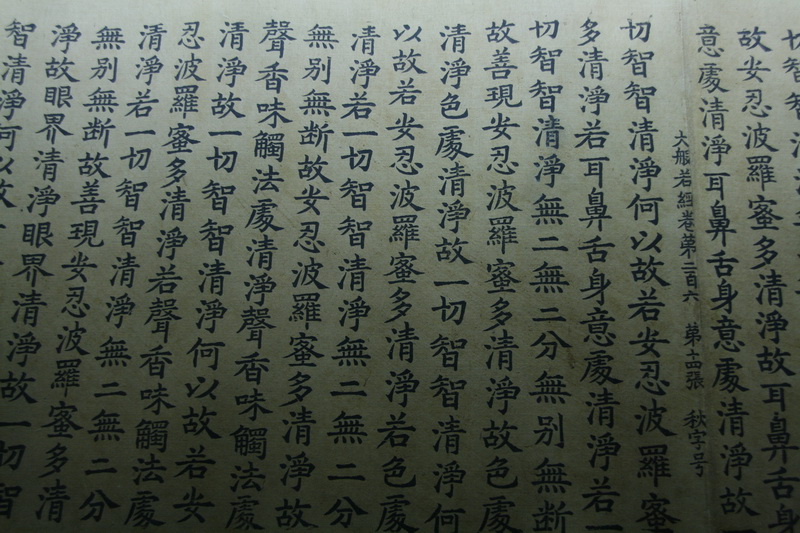 切智智
故安忍波羅蜜多清淨故耳鼻舌身
意處清淨耳鼻舌身意處清淨故
大般若經卷第二百六 第十四張 秋字号
切智智清淨何以故若安忍波羅蜜
多清淨若耳鼻舌身意處清淨若一
切智智清淨無二無二分無別無斷
故善現安忍波羅蜜多清淨故色處
清淨色處清淨故一切智智清淨何
以故若安忍波羅蜜多清淨若色處
清淨若一切智智清淨無二無二分
無別無斷故安忍波羅蜜多清淨故
聲香味觸法處清淨聲香味觸法處
清淨故一切智智清淨何以故若安
忍波羅蜜多清淨若聲香味觸法處
清淨若一切智智清淨無二無二分
無別無斷故善現安忍波羅蜜多清
淨故眼界清淨眼界清淨故一切智
智清淨何以故